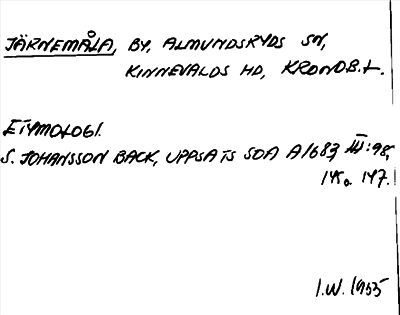 JÄRNEMÅLA, BY, ALMUNDSRYDS SN,
KINNEVALDS HD, KRONOB. L.
ETYMOLOGI.
S. JOHANSSON BACK, UPPSATS SOA A1683, III:98,
145 o. 147.
I.W. 1955